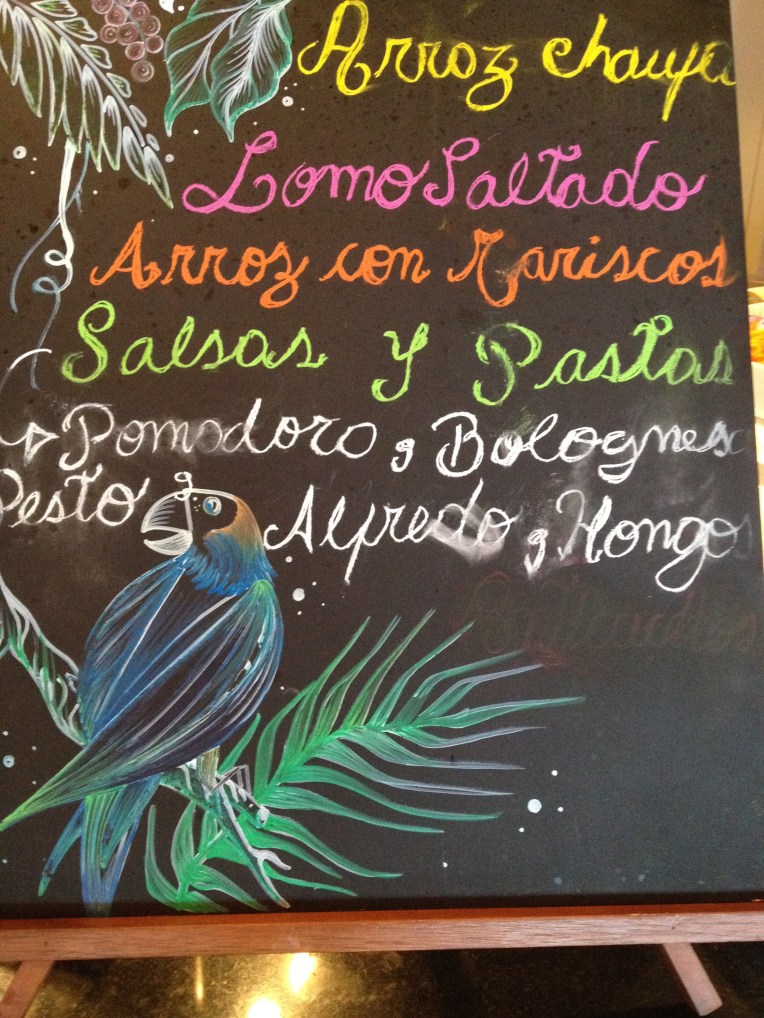 Arroz chaufa
Lomo Saltado
Arroz con Mariscos
Salsas y Pastas
Pomodoro, Bolognesa
Pesto Alfredo, Hongos